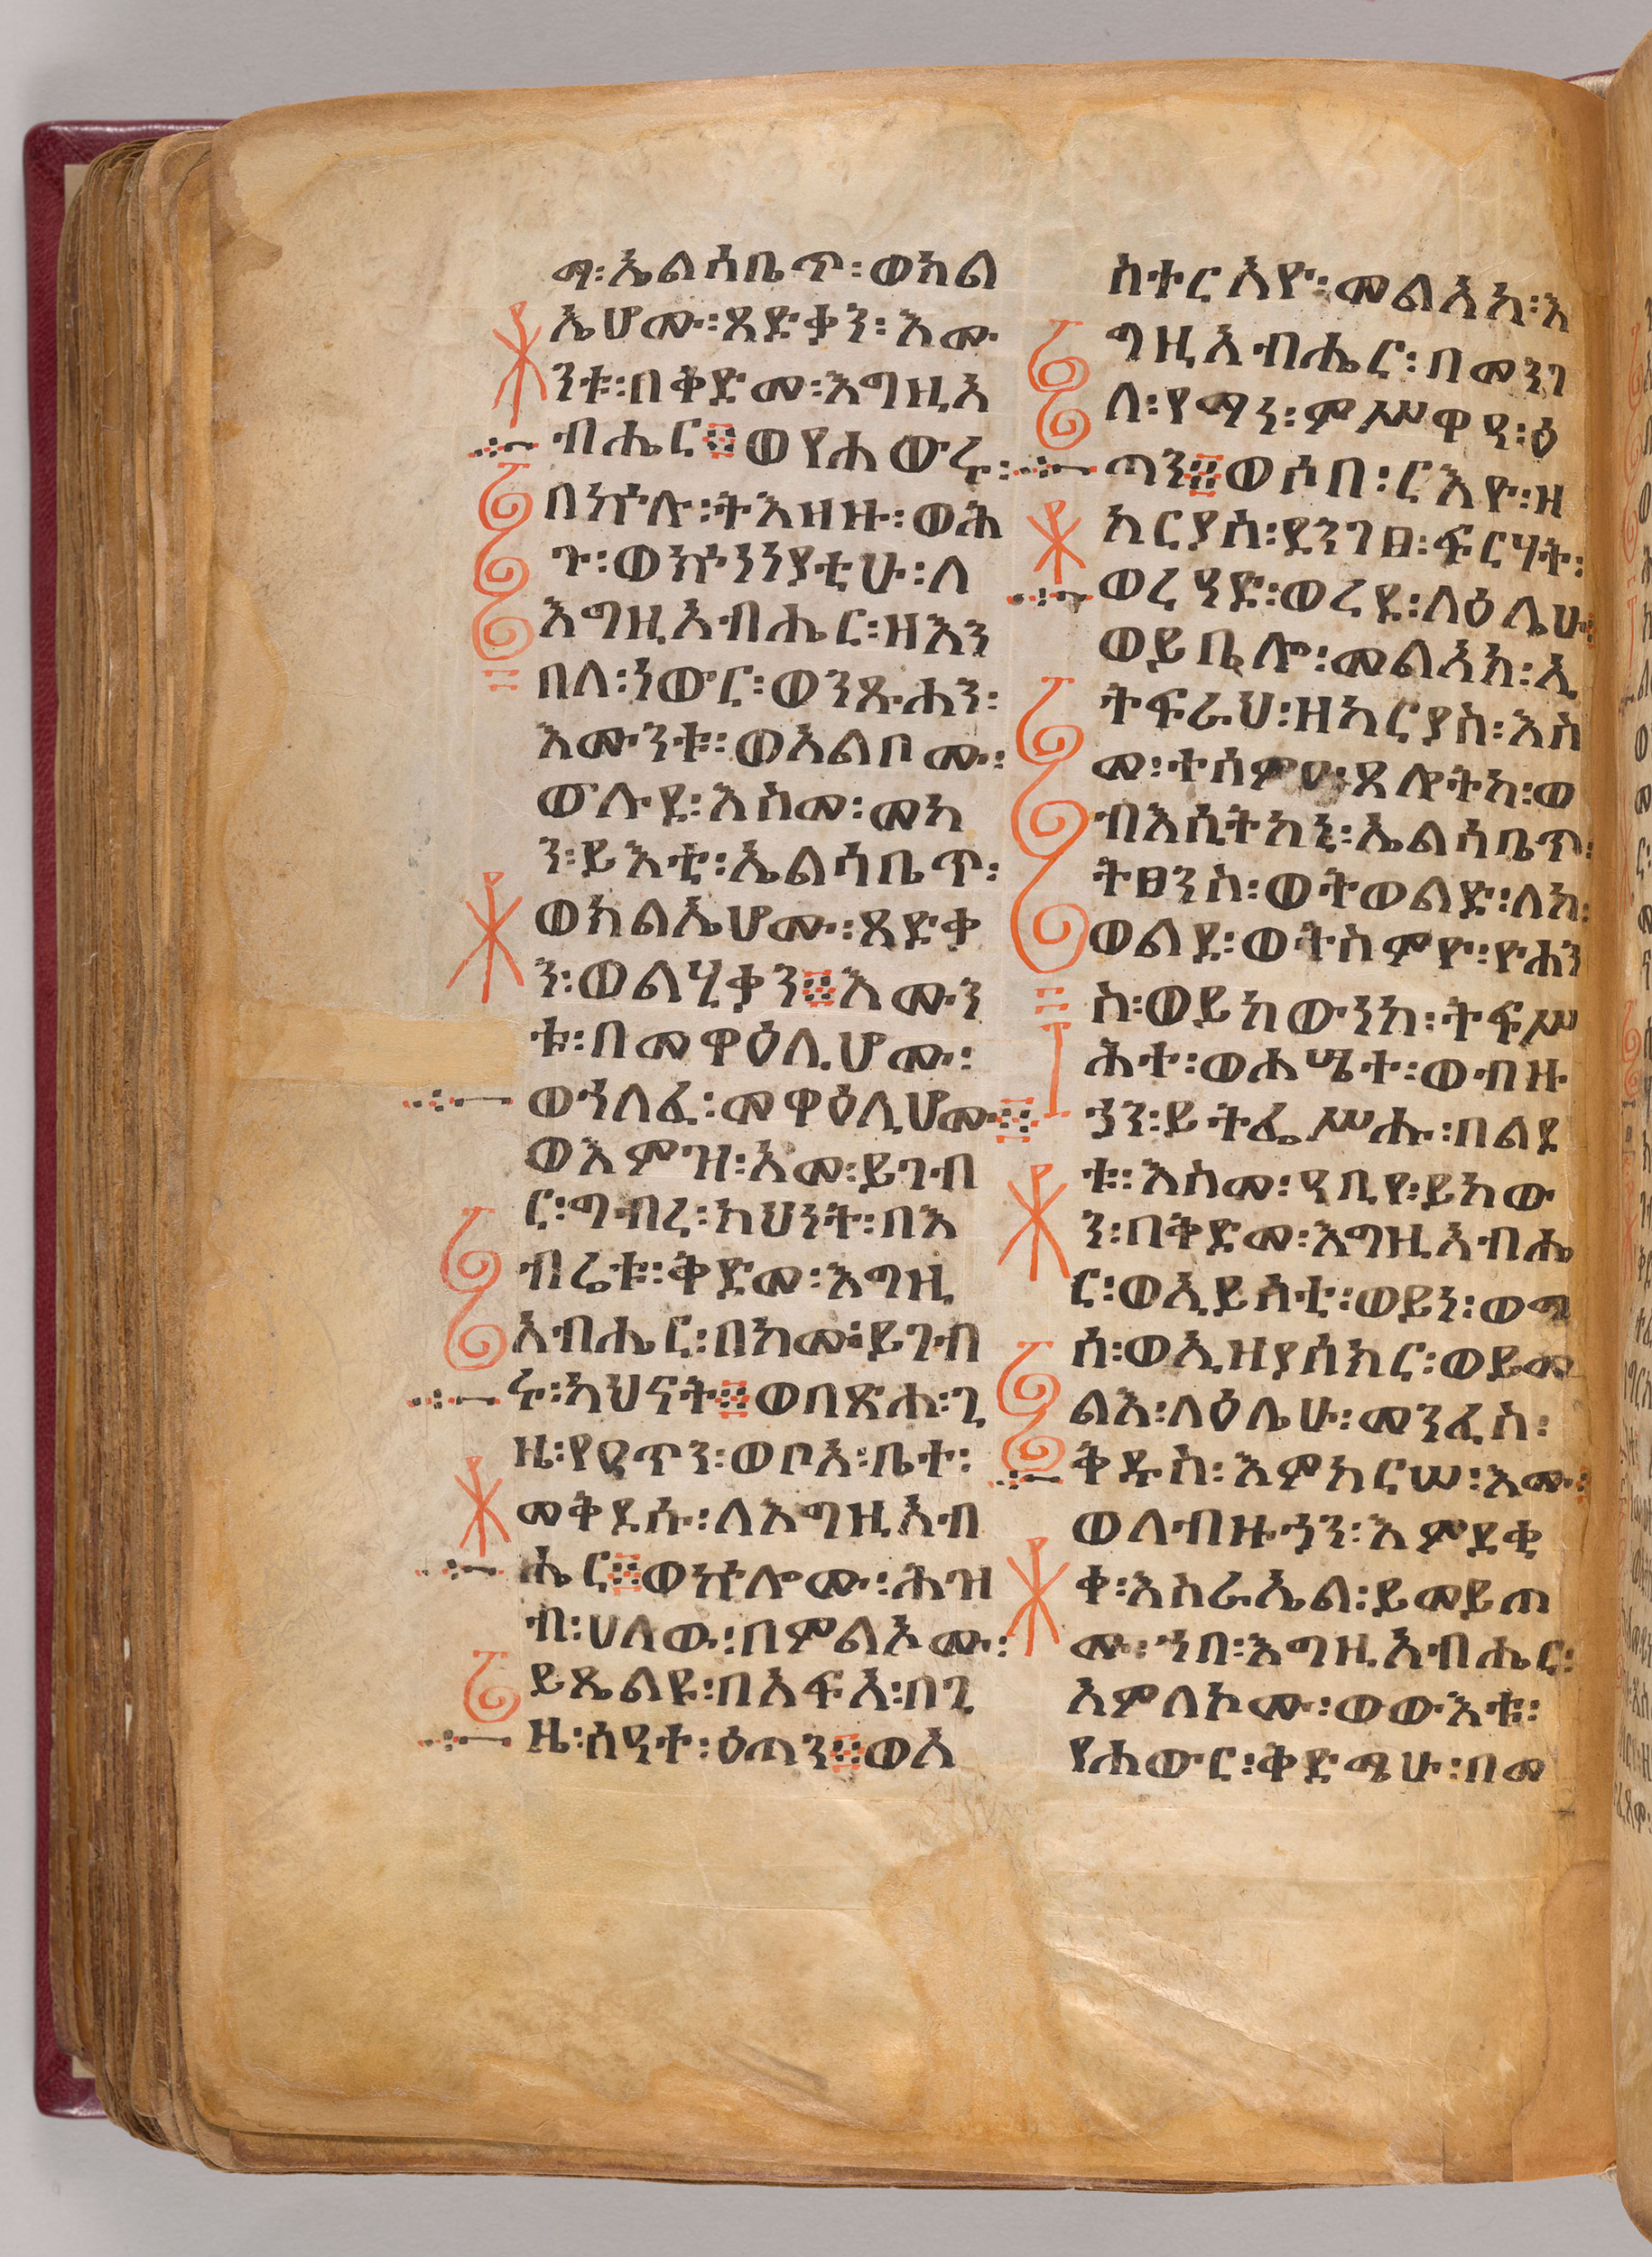 ማ፡ኤልሳቤጥ፡ወክል
ኤሆሙ፡ጻድቃን፡እሙ
ንቱ፡በቅድመ፡እግዚአ
ብሔር፨ወየሐውሩ፡
በኵሉ፡ትእዘዙ፡ወሕ
ጉ፡ወኵነኔያቲሁ፡ለ
እግዚአብሔር፡ዘእን
በለ፡ነውር፡ወንጹሐን፡
እሙንቱ፡ወአልቦሙ፡
ውሉደ፡እስመ፡መካ
ን፡ይእቲ፡ኤልሳቤጥ፡
ወክልኤሆሙ፡ጻድቃ
ን፡ወልሂቃን፨እሙን
ቱ፡በመዋዕሊሆሙ፡
ወኀለፈ፡መዋዕሊሆሙ፨
ወእምዝ፡እመ፡ይገብ
ር፡ግብረ፡ክህነት፡በእ
ብሬቱ፡ቅድመ፡እግዚ
አብሔር፡በከመ፡ይገብ
ሩ፡ካህናት፨ወበጽሐ፡ጊ
ዜ፡የዐጥን፡ወቦአ፡ቤተ፡
መቅደሱ፡ለእግዚአብ
ሔር፨ወኵሎሙ፡ሕዝ
ብ፡ሀለዉ፡በምልኦሙ፡
ይጼልዩ፡በአፍአ፡በጊ
ዜ፡ሰዓተ፡ዕጣን፨ወአ
ስተርአዮ፡መልአከ፡እ
ግዚአብሔር፡በመንገ
ለ፡የማነ፡ምሥዋዓ፡ዕ
ጣን፨ወሶበ፡ርእዮ፡ዘ
ካርያስ፡ደንገፀ፡ፍርሃት፡
ወረዓድ፡ወረደ፡ለዕሌሁ፡
ወይቤሎ፡መልአክ፡ኢ
ትፍራህ፡ዘካርያስ፡እስ
መ፡ተሰምዐ፡ጸሎትከ፡ወ
ብእሲትከኒ፡ኤልሳቤጥ፡
ትፀንስ፡ወትወልድ፡ለከ፡
ወልደ፡ወትሰምዮ፡ዮሐን
ስ፡ወይከውነከ፡ትፍሥ
ሕተ፡ወሐሤተ፡ወብዙ
ኃን፡ይትፌሥሑ፡በልደ
ቱ፡እስመ፡ዓቢየ፡ይከው
ን፡በቅድመ፡እግዚአብሔ
ር፡ወኢይሰቲ፡ወይነ፡ወሜ
ሰ፡ወኢዘያሰክር፡ወይመ
ልእ፡ለዕሌሁ፡መንፈስ፡
ቅዱስ፡እምከርሠ፡እሙ፡
ወለብዙኃን፡እምደቂ
ቀ፡እስራኤል፡ይመይጦ
ሙ፡ኀበ፡እግዚአብሔር፡
አምላኮሙ፡ወውእቱ፡
የሐውር፡ቅድሜሁ፡በመ